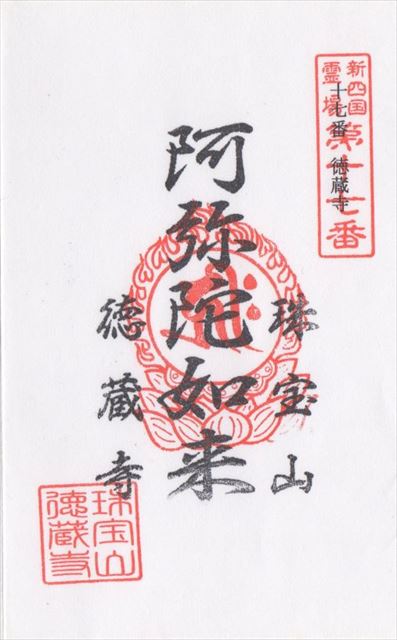 新四国
霊場
第十七番
十七番 徳蔵寺
珠宝山
阿弥陀如来
徳蔵寺
珠宝山
徳蔵寺